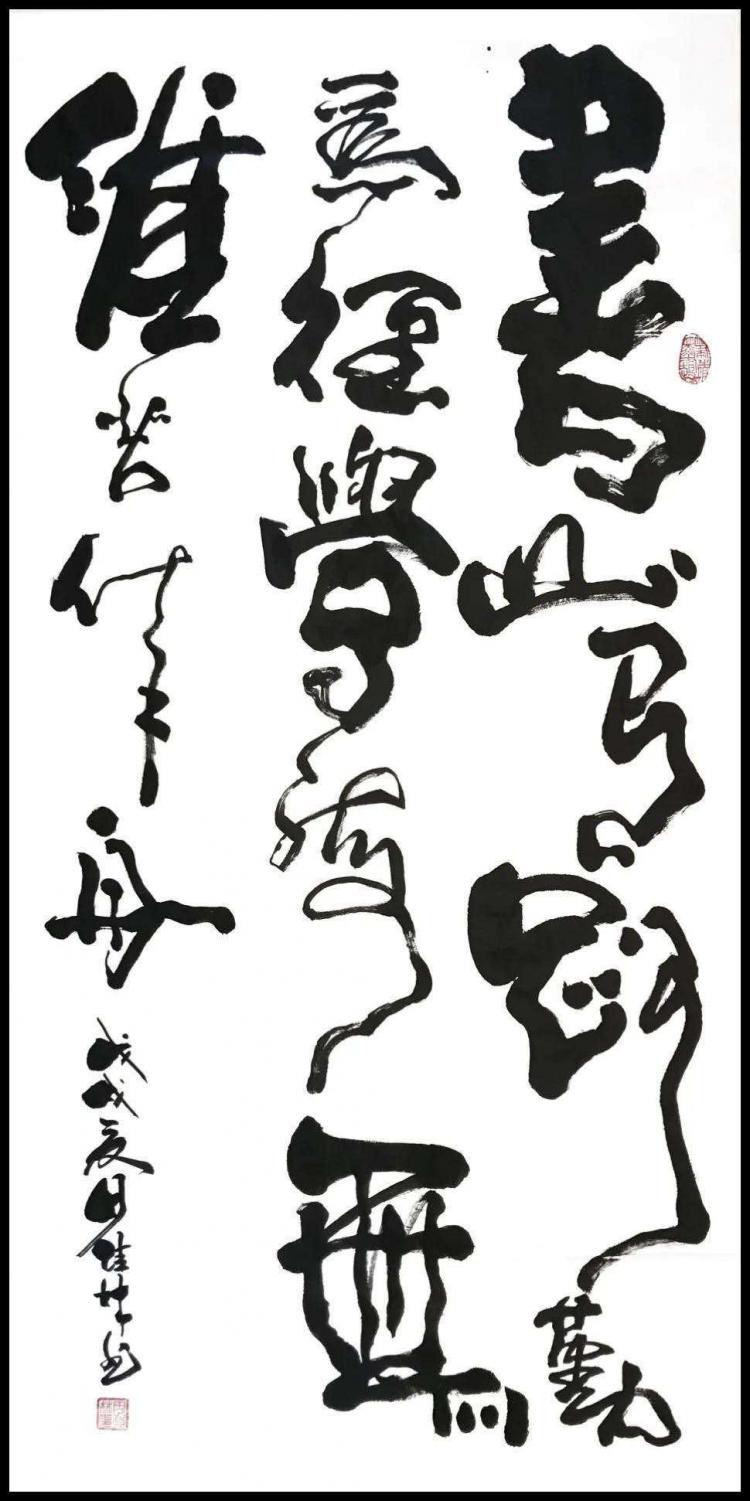 書山有路勤
為徑學海無
涯苦作舟
戊戌夏月佳坤书